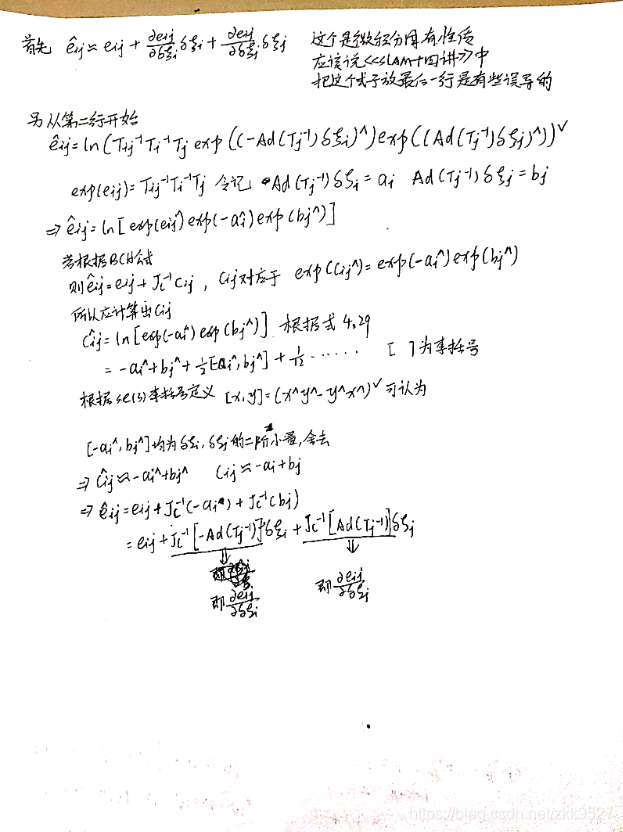 首先 êij ≈ eij + ∂eij/∂δξi δξi + ∂eij/∂δξj δξj 这个是微积分固有性质
应该说<<SLAM十四讲>>中
把这个式子放最后一行是有些误导的
另从第二行开始
êij = ln(Tij⁻¹Ti⁻¹Tj exp((-Ad(Tj⁻¹)δξi)^)exp((Ad(Tj⁻¹)δξj)^))ˇ
exp(eij) = Tij⁻¹Ti⁻¹Tj 令记 Ad(Tj⁻¹)δξi = ai Ad(Tj⁻¹)δξj = bj
⇒ êij = ln[exp(eij^)exp(-ai^)exp(bj^)]
若根据BCH公式
则 êij = eij + Jc⁻¹Cij , Cij对应于 exp(Cij^) = exp(-ai^)exp(bj^)
所以应计算出Cij
Cij^ = ln[exp(-ai^)exp(bj^)] 根据式4.29
= -ai^+bj^+½[-ai^,bj^]+1/12 ······ [ ]为李括号
根据se(3)李括号定义 [x,y] = (x^y^-y^x^)ˇ 可认为
[-ai^,bj^]均为δξi,δξj的二阶小量,舍去
⇒ Cij^ ≈ -ai^+bj^ Cij ≈ -ai+bj
⇒ êij = eij+Jc⁻¹(-ai^)+Jc⁻¹(bj)
= eij+Jc⁻¹[-Ad(Tj⁻¹)]δξi+Jc⁻¹[Ad(Tj⁻¹)]δξj
⇓ ⇓
即∂eij/∂δξi 即∂eij/∂δξj
https://blog.csdn.net/zkk9527